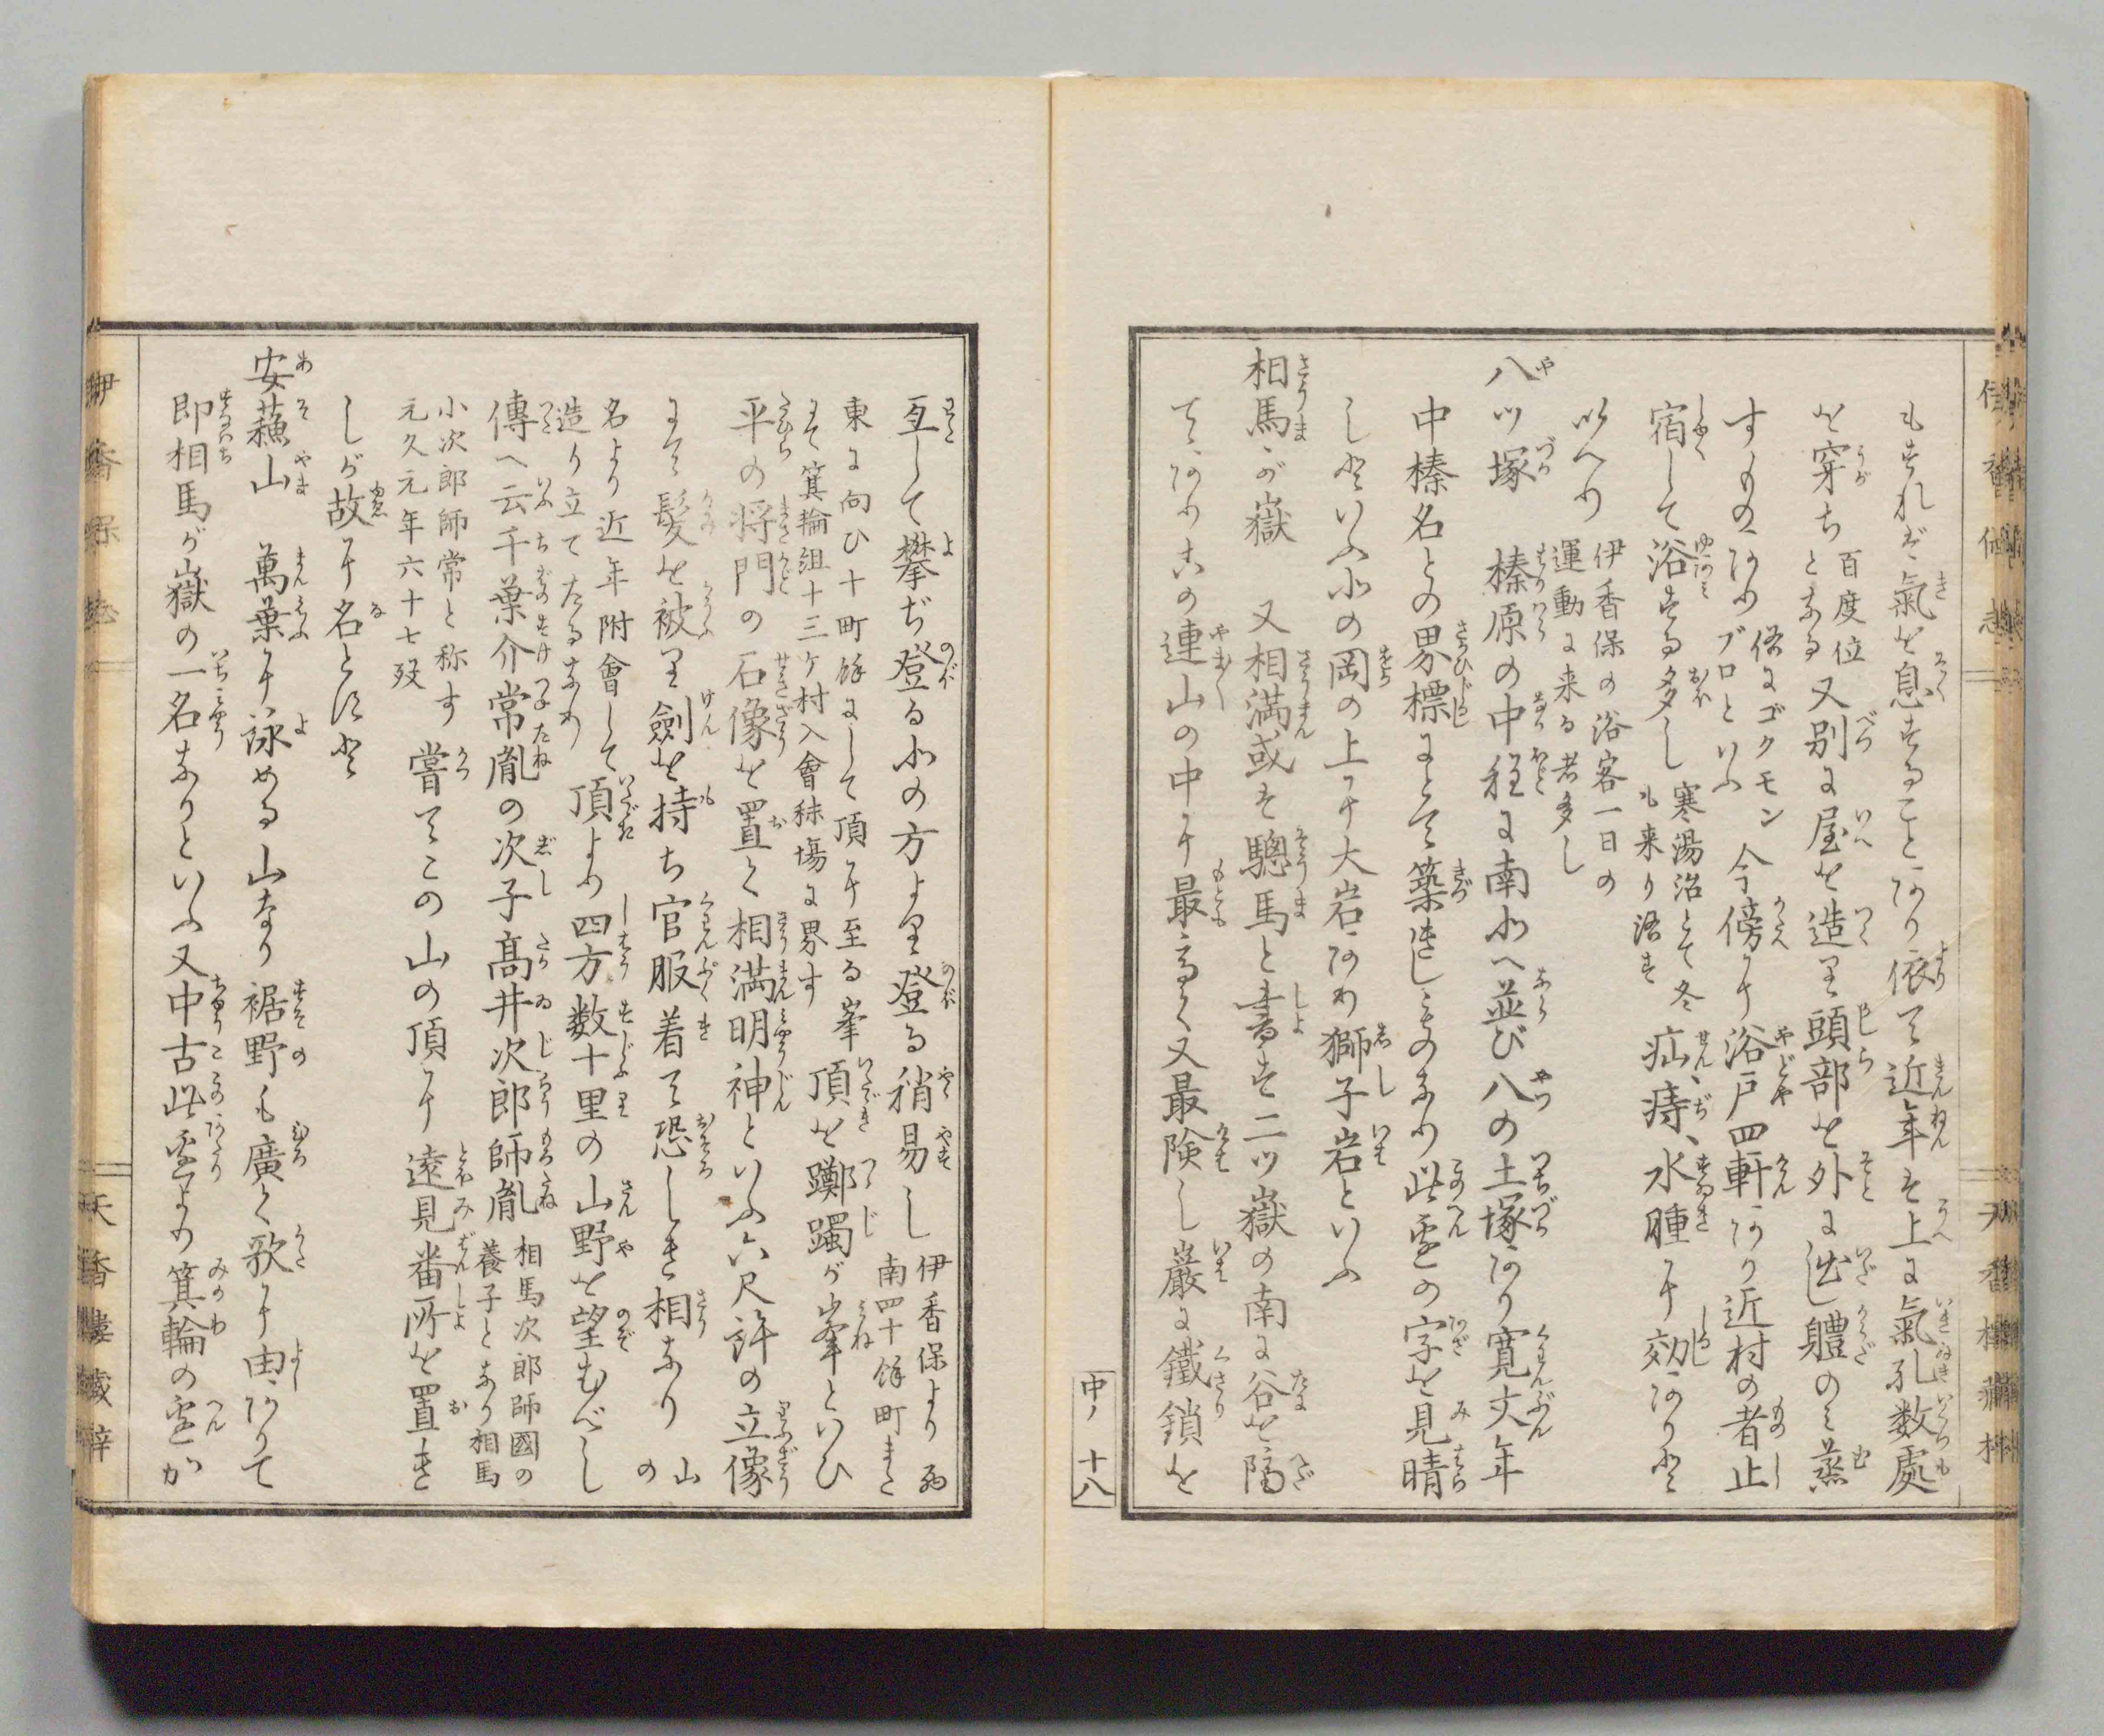 もすれば氣を息することあり依て近年は上に氣孔数處
を穿ち百度位となる又別に屋を造りて頭部を外に出し軆のミ蒸
すものあり俗にゴクモンブロといふ今傍に浴戸四軒あり近村の者止
宿して浴する多し寒湯治とて冬も来り浴す疝、痔、水腫に効ありと
いへり伊香保の浴客一日の運動に来る者多し
八ツ塚 榛原の中程に南北へ並び八の土塚あり寛文年
中榛名との界標にとて築きしものなり此邊の字を見晴
しといふ北の岡の上に大岩あり獅子岩といふ
相馬が嶽 又相満或は驄馬と書す二ツ嶽の南に谷を隔
てゝあり古の連山の中に最も高く又最険し巌に鐵鎖を
中ノ十八
亙して攀ぢ登る北の方より登る稍易し伊香保より西南四十餘町また
東に向ひ十町餘にして頂に至る峯にて箕輪組十三ケ村入會秣塲に界す頂を躑躅が峯といひ
平の将門の石像を置く相満明神といふ六尺許の立像
にて髮を被り劍を持ち官服着て恐しき相なり山の
名より近年附會して造り立てたるなり頂より四方数十里の山野を望むべし
傳へ云千葉介常胤の次子髙井次郎師胤相馬次郎師國の養子となり相馬
小次郎師常と称す元久元年六十七歿嘗てこの山の頂に遠見番所を置き
しが故に名とすと
安蘓山 萬葉に詠める山なり裾野も廣く歌に由ありて
即相馬が嶽の一名なりといふ又中古此邊より箕輪の邊か
伊香保志
天香樓藏梓